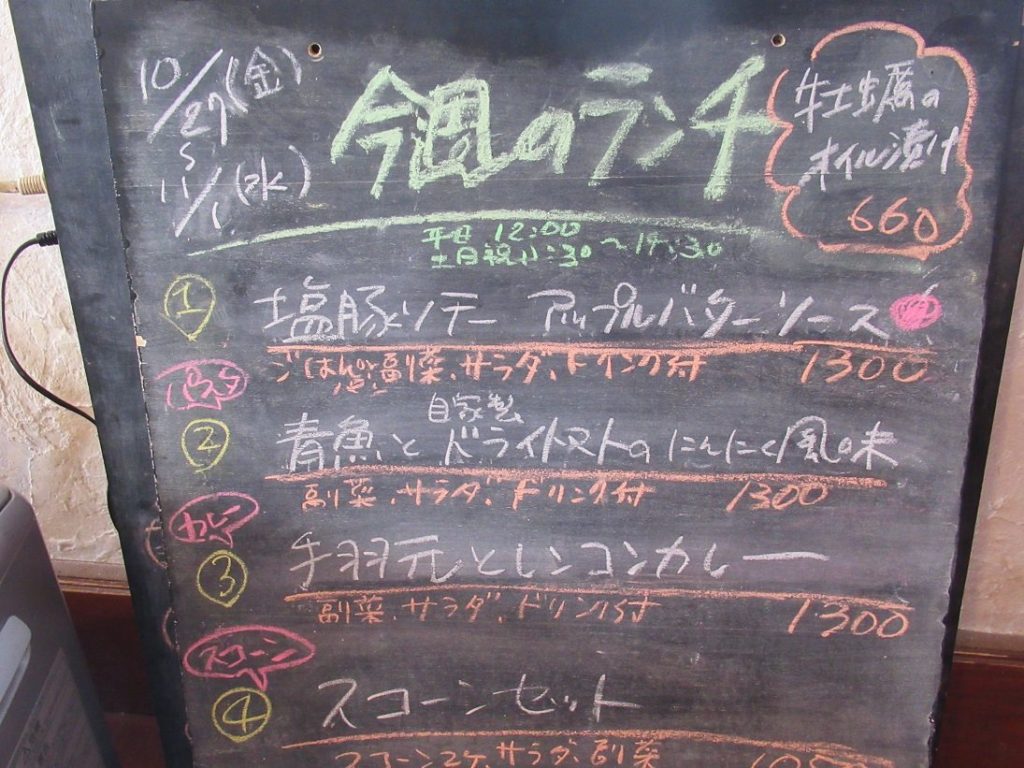 10/27(金)
〜
11/1(水)
今週のランチ
牡蠣の
オイル漬け
660
平日 12:00
土日祝 11:30 〜14:30
① 塩豚ソテー アップルバターソース
ごはん 副菜、サラダ、ドリンク付 1300
パスタ
② 青魚と自家製ドライトマトのにんにく風味
副菜、サラダ、ドリンク付 1300
カレー
③ 手羽元とレンコンカレー
副菜、サラダ、ドリンク付 1300
スコーン
④ スコーンセット
スコーン2ケ、サラダ、副菜